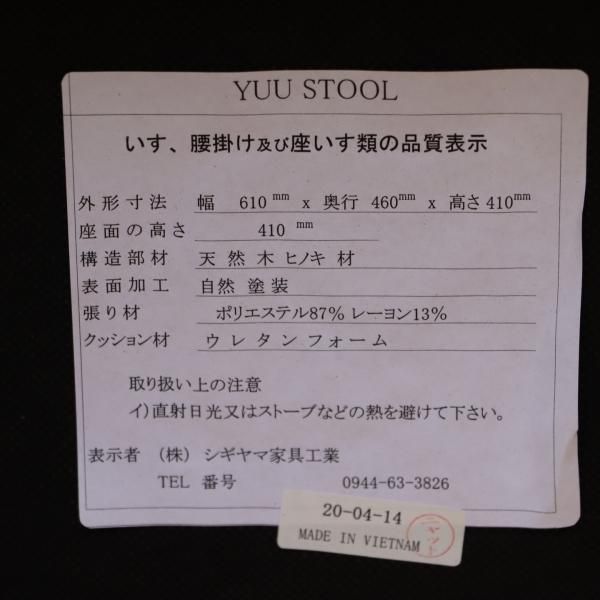 YUU STOOL
いす、腰掛け及び座いす類の品質表示
外形寸法 幅 610mm x 奥行 460mm x 高さ410mm
座面の高さ 410 mm
構造部材 天然木ヒノキ材
表面加工 自然塗装
張り材 ポリエステル87% レーヨン13%
クッション材 ウレタンフォーム
取り扱い上の注意
イ)直射日光又はストーブなどの熱を避けて下さい。
表示者 (株) シギヤマ家具工業
TEL 番号 0944-63-3826
20-04-14
MADE IN VIETNAM